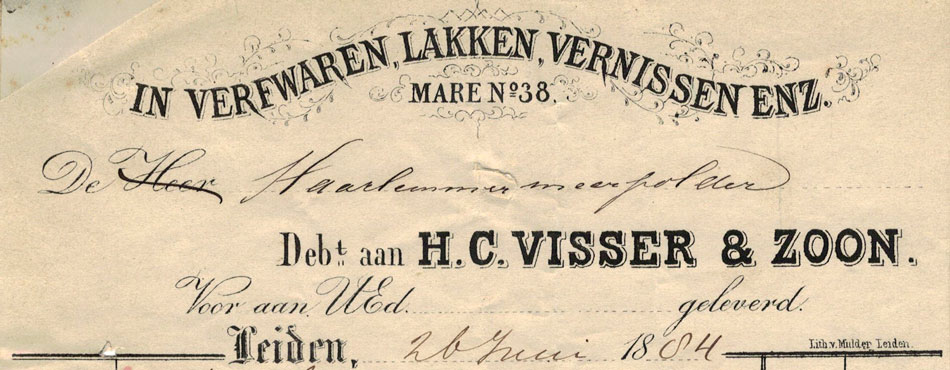 IN VERFWAREN, LAKKEN, VERNISSEN ENZ.
MARE No. 38.
De Heer Haarlemmermeerpolder
Debt. aan H. C. VISSER & ZOON.
Voor aan UEd. geleverd.
Leiden, 26 Juni 1884
Lith. v. Mulder, Leiden.